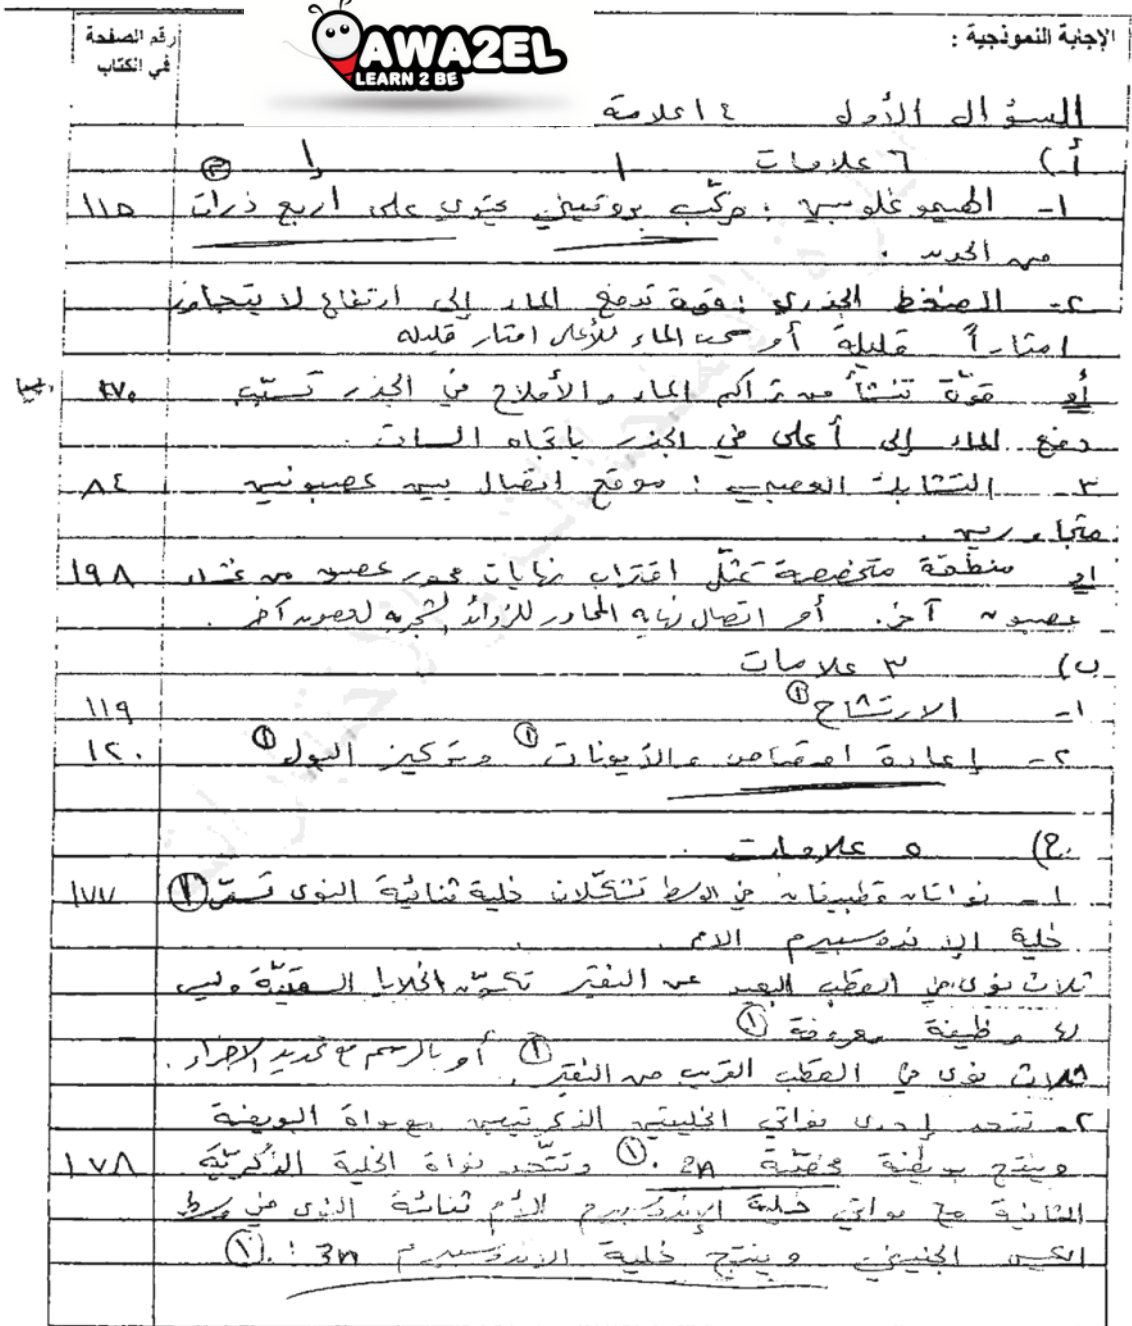 رقم الصفحة
في الكتاب
AWA2EL
LEARN 2 BE
الإجابة النموذجية :
السؤال الأول ١٤ علامة
أ) ٦ علامات ١ ١ ٣
١- الهيموغلوبين : مركّب بروتيني يحتوي على أربع ذرات ١١٥
من الحديد .
٢- الضغط الجذري : قوة تدفع الماء إلى ارتفاع لا يتجاوز
امتاراً قليلة أو سحب الماء للأعلى امتار قليله
أو قوّة تنشأ من تراكم الماء والأملاح في الجذر تسبّب ١٧٠
دفع الماء إلى أعلى في الجذر باتجاه الساق .
٣- التشابك العصبي : موقع اتصال بين عصبونين ٨٤
متجاورين .
او منطقة متخصصة تمثل اقتراب نهايات محور عصبون من غشاء ١٩٨
عصبون آخر . أو اتصال نهايه المحاور للزوائد الشجريه لعصبون آخر .
ب) ٣ علامات
١- الارتشاح ١ ١١٩
٢- إعادة امتصاص والأيونات ١ وتركيز البول ١ ١٢٠
ج) ٥ علامات .
١- نواتان قطبيتان في الوسط تشكّلان خلية ثنائية النوى تسمّى ١ ١٧٧
خلية الإندوسبيرم الأم .
ثلاث نوى في القطب البعيد عن النقير تكوّن الخلايا السمتيّة وليس
لها وظيفة معروفة ١
ثلاث نوى في القطب القريب من النقير . ١ أو بالرسم مع تحديد الاجزاء .
٢- تتحد إحدى نواتي الخليتين الذكريتين مع نواة البويضة
وينتج بويضة مخصّبة 2n . ١ وتتّحد نواة الخلية الذكريّة ١٧٨
الثانية مع نواتي خلية الإندوسبيرم الأم ثنائية النوى في وسط
الكيس الجنيني وينتج خلية الاندوسبيرم 3n . ١